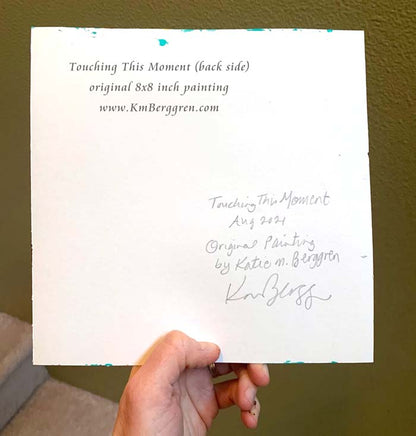 Touching This Moment (back side)
original 8x8 inch painting
www.KmBerggren.com
Touching This Moment
Aug 2021
Original Painting
by Katie m. Berggren
KmBergg